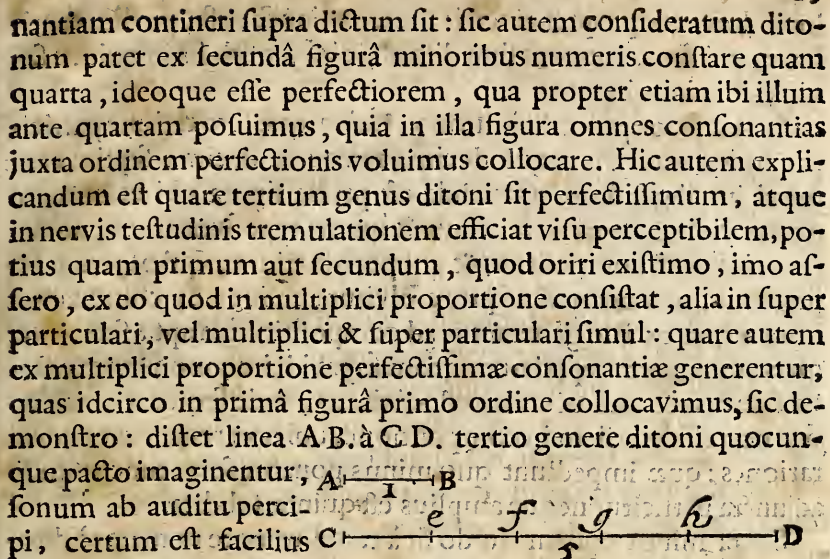 nantiam contineri ſupra dictum ſit : ſic autem conſideratum dito-
num patet ex ſecundâ figurâ minoribus numeris conſtare quam
quarta , ideoque eſſe perfectiorem , qua propter etiam ibi illum
ante quartam poſuimus , quia in illa figura omnes conſonantias
juxta ordinem perfectionis voluimus collocare. Hic autem expli-
candum eſt quare tertium genus ditoni ſit perfectiſſimum , atque
in nervis teſtudinis tremulationem efficiat viſu perceptibilem, po-
tius quam primum aut ſecundum , quod oriri exiſtimo , imo aſ-
ſero , ex eo quod in multiplici proportione conſiſtat , alia in ſuper
particulari , vel multiplici & ſuper particulari ſimul : quare autem
ex multiplici proportione perfectiſſimæ conſonantiæ generentur,
quas idcirco in primâ figurâ primo ordine collocavimus, ſic de-
monſtro : diſtet linea A B. à C D. tertio genere ditoni quocun-
que pacto imaginentur, A B
1
ſonum ab auditu perci-
e f g h
pi, certum eſt facilius C D
5